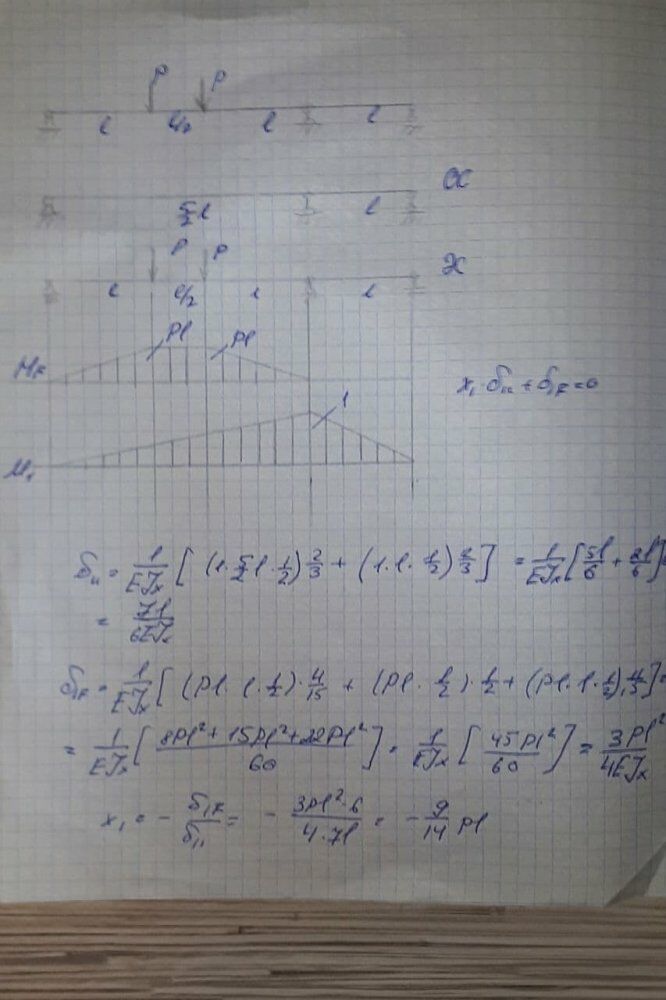 P P
l l/2 l l
5/2 l l OC
P P
l l/2 l l ЭС
Pl Pl
M_F
X₁·δ₁₁ + δ₁F = 0
1
M₁
δ₁₁ = 1/EJx [(1·5/2 l·1/2) 2/3 + (1·l·1/2) 2/3] = 1/EJx [5l/6 + 2l/6] =
= 7l/6EJx
δ₁F = 1/EJx [(Pl·l·1/2)·4/15 + (Pl·l/2)·1/2 + (Pl·l·1/2)· ] =
= 1/EJx [8Pl² + 15Pl² + 22Pl²/60] = 1/EJx [45Pl²/60] = 3Pl²/4EJx
X₁ = - δ₁F/δ₁₁ = - 3Pl²·6/4·7l = - 9/14 Pl